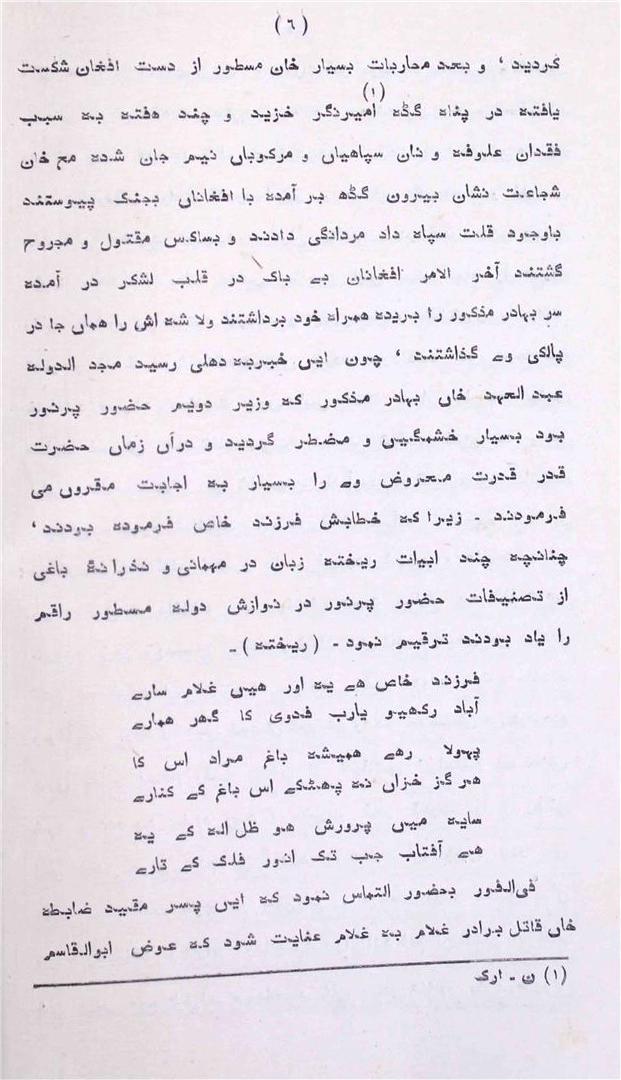 ( ٦ )
گردید، و بعد محاربات بسیار خان مسطور از دست افغان شکست
یافته در پناه گڈہ امیرنگر (١) خزید و چند هفته به سبب
فقدان علوفه و نان سپاهیان و مرکوبان نیم جان شده مع خان
شجاعت نشان بیرون گڈھ بر آمده با افغانان بجنگ پیوستند
باوجود قلت سپاه داد مردانگی دادند و بساکس مقتول و مجروح
گشتند آخر الامر افغانان بے باک در قلب لشکر در آمده
سر بهادر مذکور را بریده همراه خود برداشتند ولا شه اش را همان جا در
پالکی وے گذاشتند، چون این خبر به دهلی رسید مجد الدوله
عبد الاحد خان بهادر مذکور که وزیر دویم حضور پرنور
بود بسیار خشمگین و مضطر گردید و دران زمان حضرت
قدر قدرت معروض وے را بسیار به اجابت مقرون می
فرمودند ـ زیرا که خطابش فرزند خاص فرموده بودند،
چنانچه چند ابیات ریخته زبان در مهمانی و نذرانۀ باغی
از تصنیفات حضور پرنور در نوازش دوله مسطور راقم
را یاد بودند ترقیم نمود ـ ( ریخته ) ـ
فرزند خاص هے یه اور هیں غلام سارے
آباد رکھیو یارب فدوی کا گھر همارے
پھولا رهے همیشه باغ مراد اس کا
هر گز خزاں نه پھٹکے اس باغ کے کنارے
سایه میں پرورش هو ظل اله کے یه
هے آفتاب جب تک انور فلک کے تارے
فی الفور بحضور التماس نمود که این پسر مقید ضابطه
خان قاتل برادر غلام به غلام عنایت شود که عوض ابوالقاسم
(١) ن ـ ارک